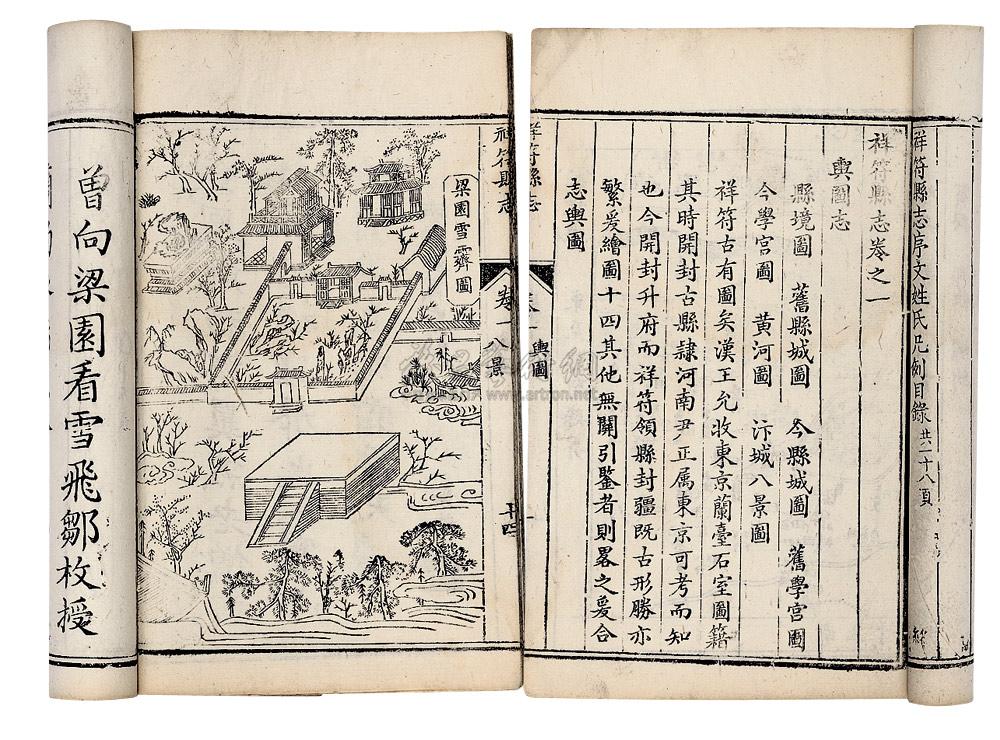 祥符縣志序文姓氏凡例目錄共二十八頁
祥符縣志卷之一
輿圖志
縣境圖 舊縣城圖 今縣城圖 舊學宮圖
今學宮圖 黃河圖 汴城八景圖
祥符古有圖矣漢王允收東京蘭臺石室圖籍
其時開封古縣隸河南尹正属東京可考而知
也今開封升府而祥符領縣封疆既古形勝亦
繁爰繪圖十四其他無關引鑒者則畧之爰合
志輿圖
祥符縣志
卷一輿圖
祥符縣志
卷一八景
十四
梁園雪霽圖
曾向梁園看雪飛鄒枚授
www.artron.net